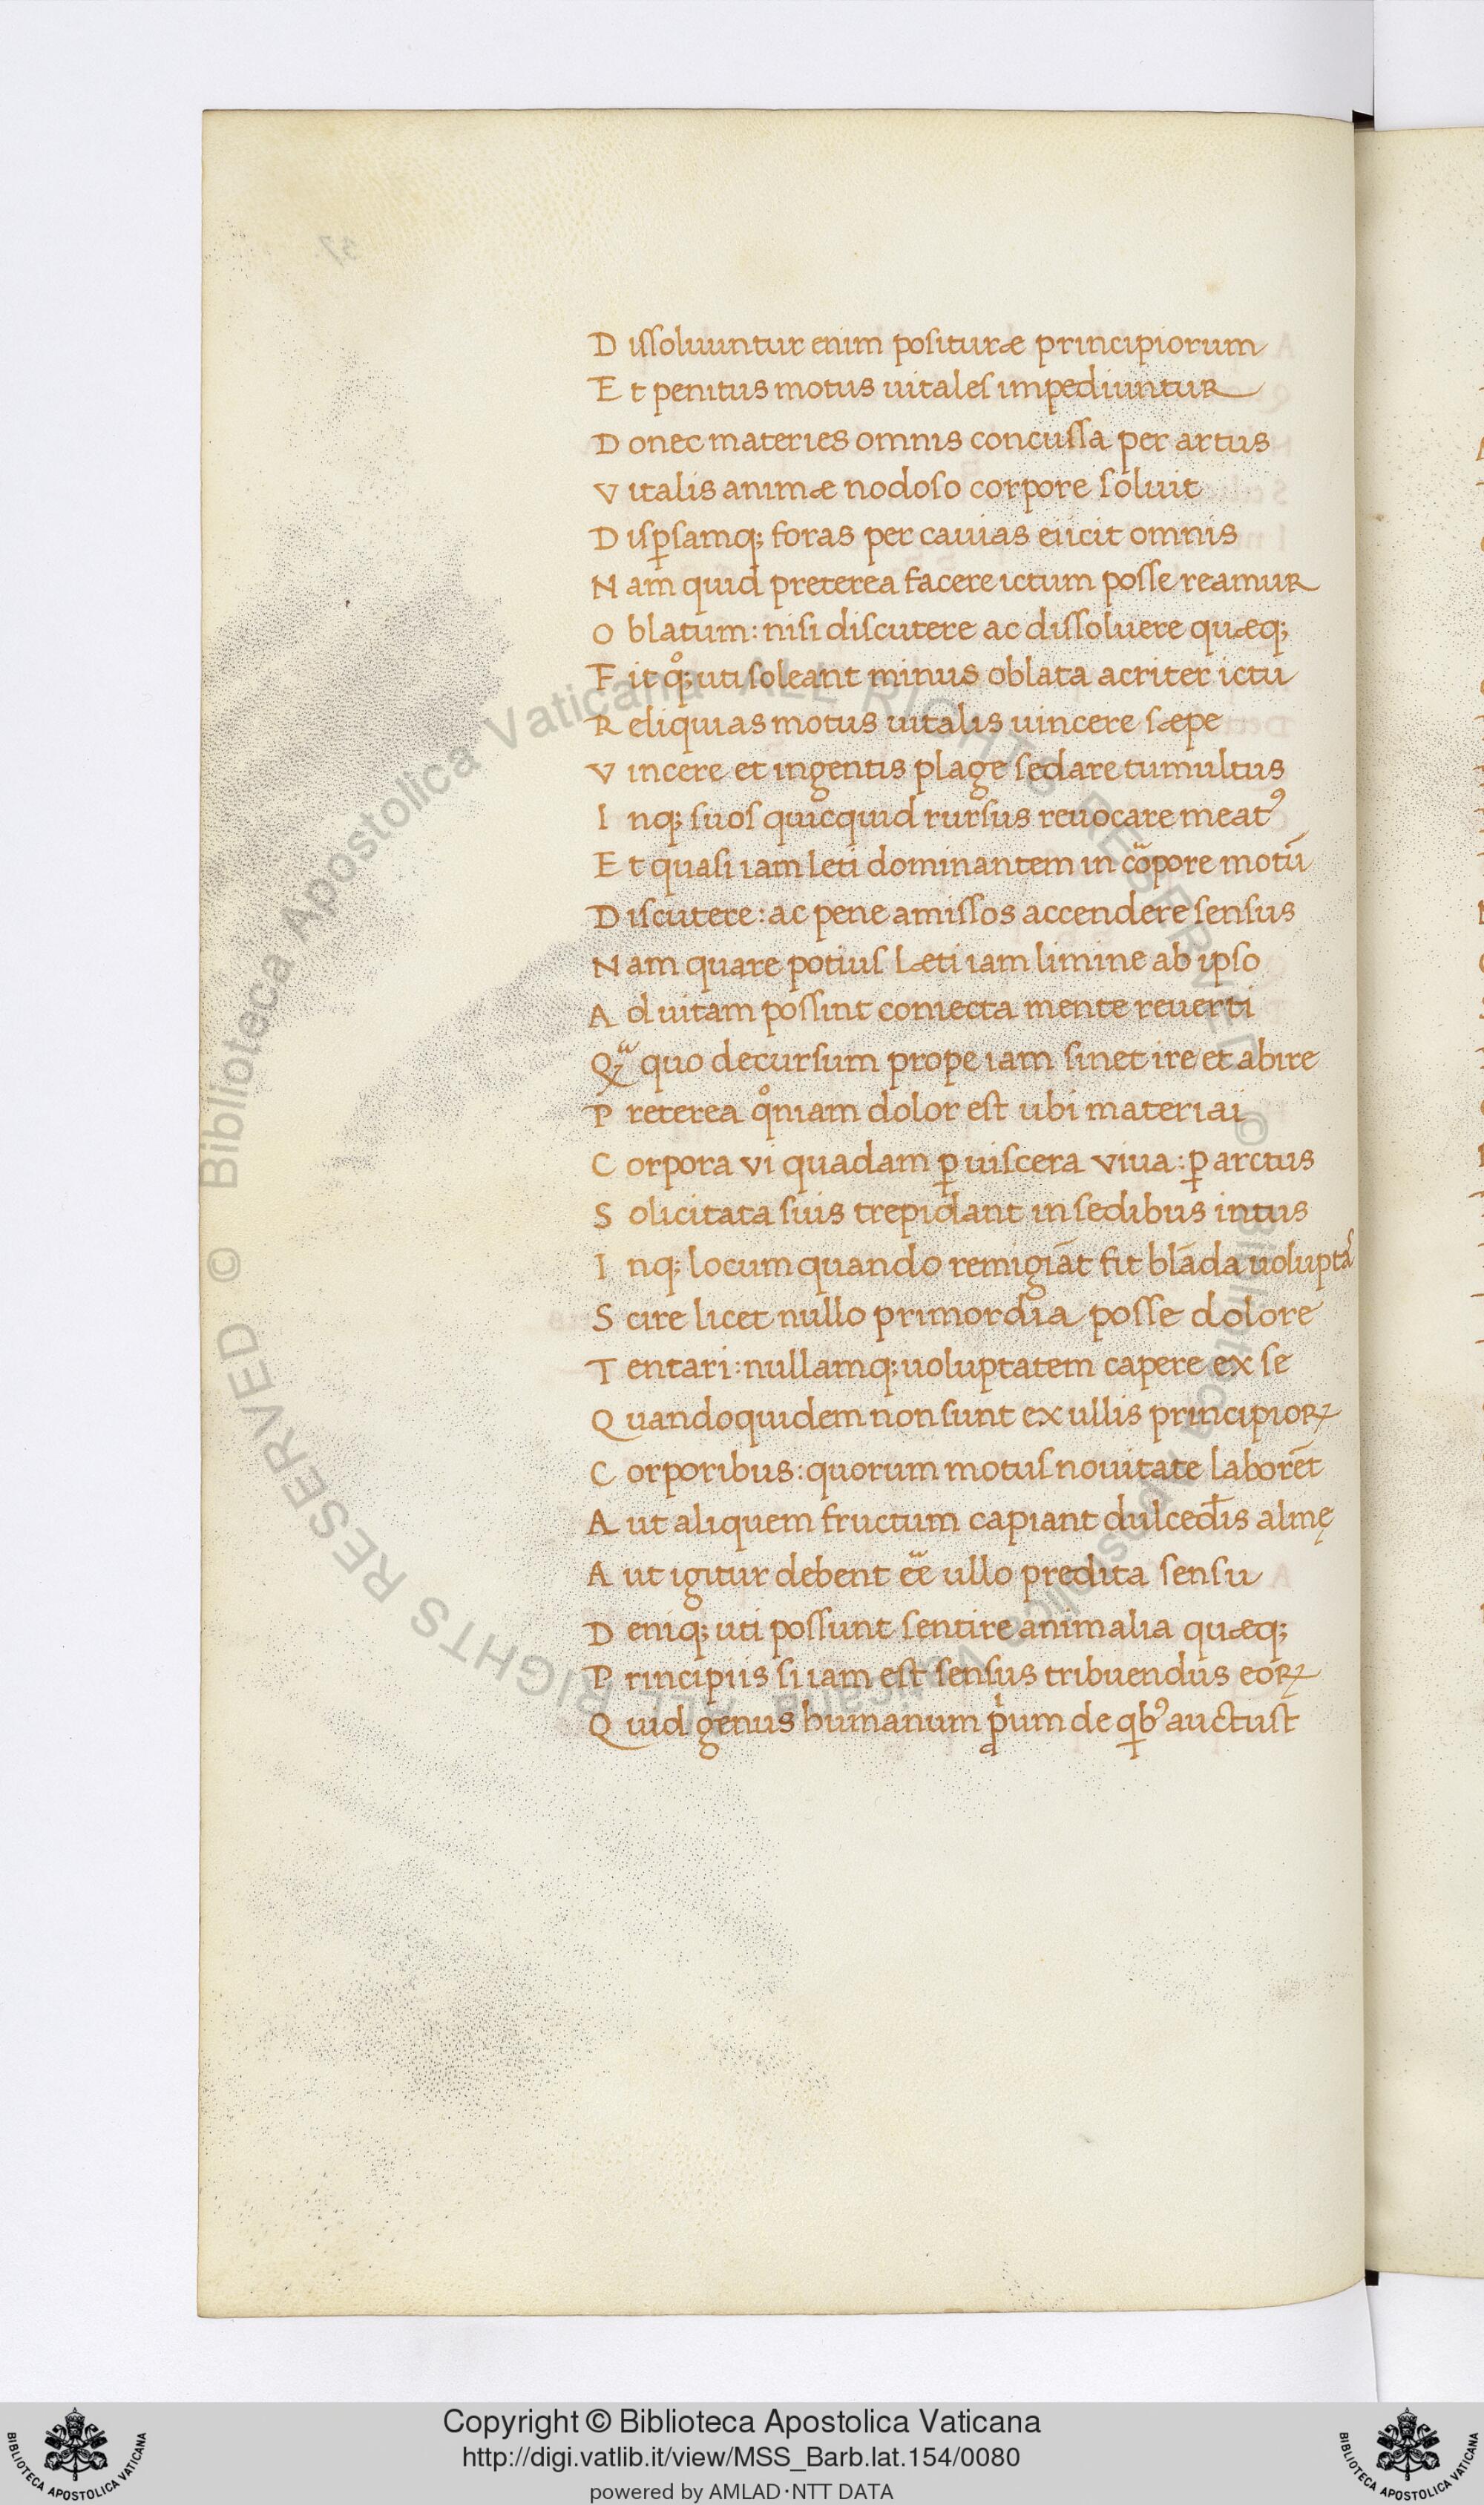 D issoluuntur enim posituræ principiorum
E t penitus motus uitales impediuntur
D onec materies omnis concussa per artus
V italis animæ nodoso corpore soluit
D isꝑsamq; foras per cauias eiicit omnis
N am quid preterea facere ictum posse reamur
O blatum: nisi discutere ac dissoluere quæq;
F it qͦ; uti soleant minus oblata acriter ictu
R eliquias motus uitalis uincere sæpe
V incere et ingentis plage sedare tumultus
I nq; suos quicquid rursus reuocare meatꝰ
E t quasi iam leti dominantem in cōpore motū
D iscutere: ac pene amissos accendere sensus
N am quare potius Læti iam limine ab ipso
A d uitam possint coniecta mente reuerti
Qꝫᷓ quo decursum prope iam sinet ire et abire
P reterea qͦniam dolor est ubi materiai
C orpora vi quadam ꝑ uiscera viua: ꝑ arctus
S olicitata suis trepidant in sedibus intus
I nq; locum quando remigiāt fit blāda uoluptaˢ
S cire licet nullo primordia posse dolore
T entari: nullamq; uoluptatem capere ex se
Q uandoquidem non sunt ex ullis principioꝝ
C orporibus: quorum motus nouitate laborēt
A ut aliquem fructum capiant dulced̄is almę
A ut igitur debent eē ullo predita sensu
D eniq; uti possunt sentire animalia quæq;
P rincipiis si iam est sensus tribuendus eoꝝ
Q uid genus humanum pͥum de qͥbꝰ auctust
Copyright © Biblioteca Apostolica Vaticana
http://digi.vatlib.it/view/MSS_Barb.lat.154/0080
powered by AMLAD·NTT DATA
© Biblioteca Apostolica Vaticana ALL RIGHTS RESERVED
© Biblioteca Apostolica Vaticana ALL RIGHTS RESERVED
BIBLIOTECA APOSTOLICA VATICANA
BIBLIOTECA APOSTOLICA VATICANA